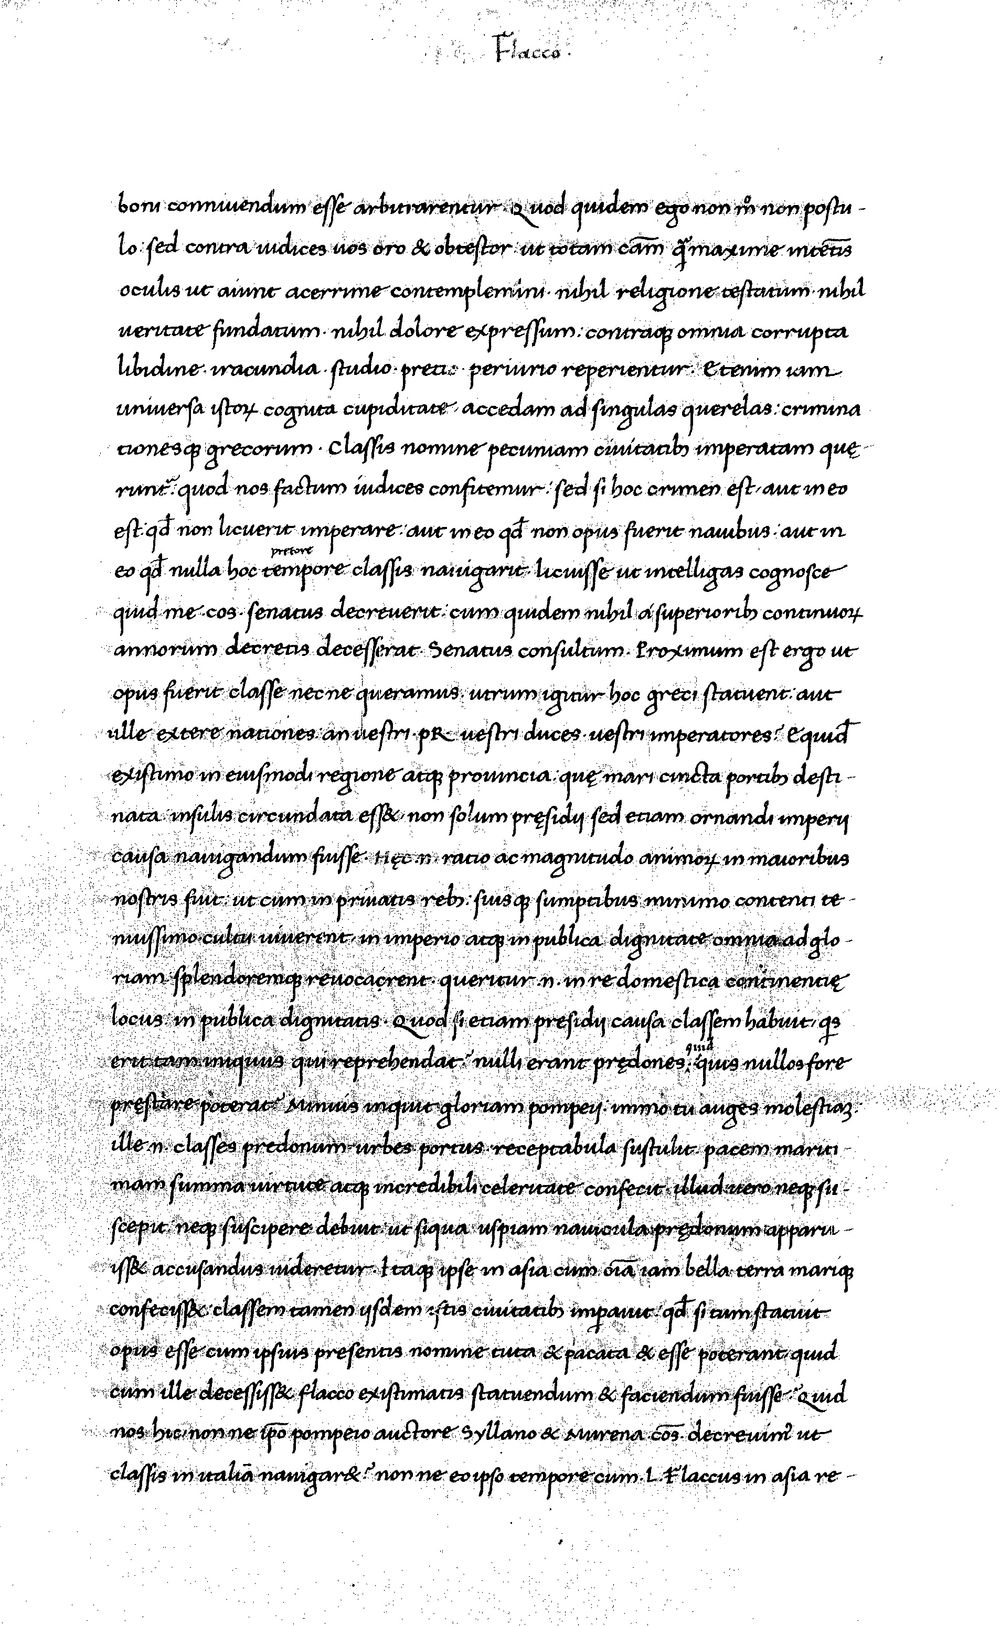 Flacco·
boni conniuendum esse arbitrarentur· Quod quidem ego non m̊ non postu-
lo· sed contra iudices uos oro & obtestor ut totam cām q̄ maxime intētis
oculis ut aiunt acerrime contemplemini· nihil religione testatum· nihil
ueritate fundatum· nihil dolore expressum: contraq; omnia corrupta
libidine· iracundia· studio· pretio· periurio reperientur· Etenim iam
uniuersa istoꝝ cognita cupiditate· accedam ad singulas querelas: crimina
tionesq; grecorum· Classis nomine pecuniam ciuitatib; imperatam quę
runt: quod nos factum iudices confitemur: sed si hoc crimen est, aut in eo
est· qđ non licuerit imperare· aut in eo qđ non opus fuerit nauibus· aut in
pretore
eo qđ nulla hoc tempore classis nauigarit· licuisse ut intelligas cognosce
quid me cos· senatus decreuerit: cum quidem nihil á superiorib; continuoꝝ
annorum decretis decesserat· Senatus consultum· Proximum est ergo ut
opus fuerit classe nec ne queramus· utrum igitur hoc greci statuent· aut
ulle extere nationes· an uestri· pR· uestri duces· uestri imperatores? Equiđ
existimo in eiusmodi regione atq; prouincia· quę mari cincta portib; desti-
nata· insulis circundata ess&· non solum pręsidij sed etiam ornandi imperij
causa nauigandum fuisse· Hęc·n· ratio ac magnitudo animoꝝ in maioribus
nostris fuit: ut cum in priuatis reb; suisq; sumptibus minimo contenti te-
nuissimo cultu uiuerent· in imperio atq; in publica dignitate omnia ad glo-
riam splendoremq; reuocacrent· queritur·n· in re domestica continentię
locus· in publica dignitatis· Quod si etiam presidij causa classem habuit, q̄s
erit tam iniquus qui reprehendat? nulli erant prędones·
quid
quis nullos fore
pręstare poterat? Minuis inquit gloriam pompeij· immo tu auges molestiaꝫ·
ille·n· classes predonum· urbes portus· receptabula sustulit· pacem mariti-
mam summa uirtute atq; incredibili celeritate confecit· illud uero neq; su-
scepit· neq; suscipere debuit· ut siqua uspiam nauicula prędonum apparu-
iss& accusandus uideretur· Itaq; ipse in asia cum oīa iam bella terra mariq;
confeciss&· classem tamen ijsdem istis ciuitatib; imꝑauit· qđ si tum statuit
opus esse cum ipsius presentis nomine tuta & pacata & esse poterant, quid
cum ille decessiss& flacco existimatis statuendum & faciendum fuisse? Quid
nos hic, non ne ip̄o pompeio auctore Syllano & Murena cōs· decreuim᷒ ut
classis in italiā nauigar&? non ne eo ipso tempore cum· L· Flaccus in asia re-